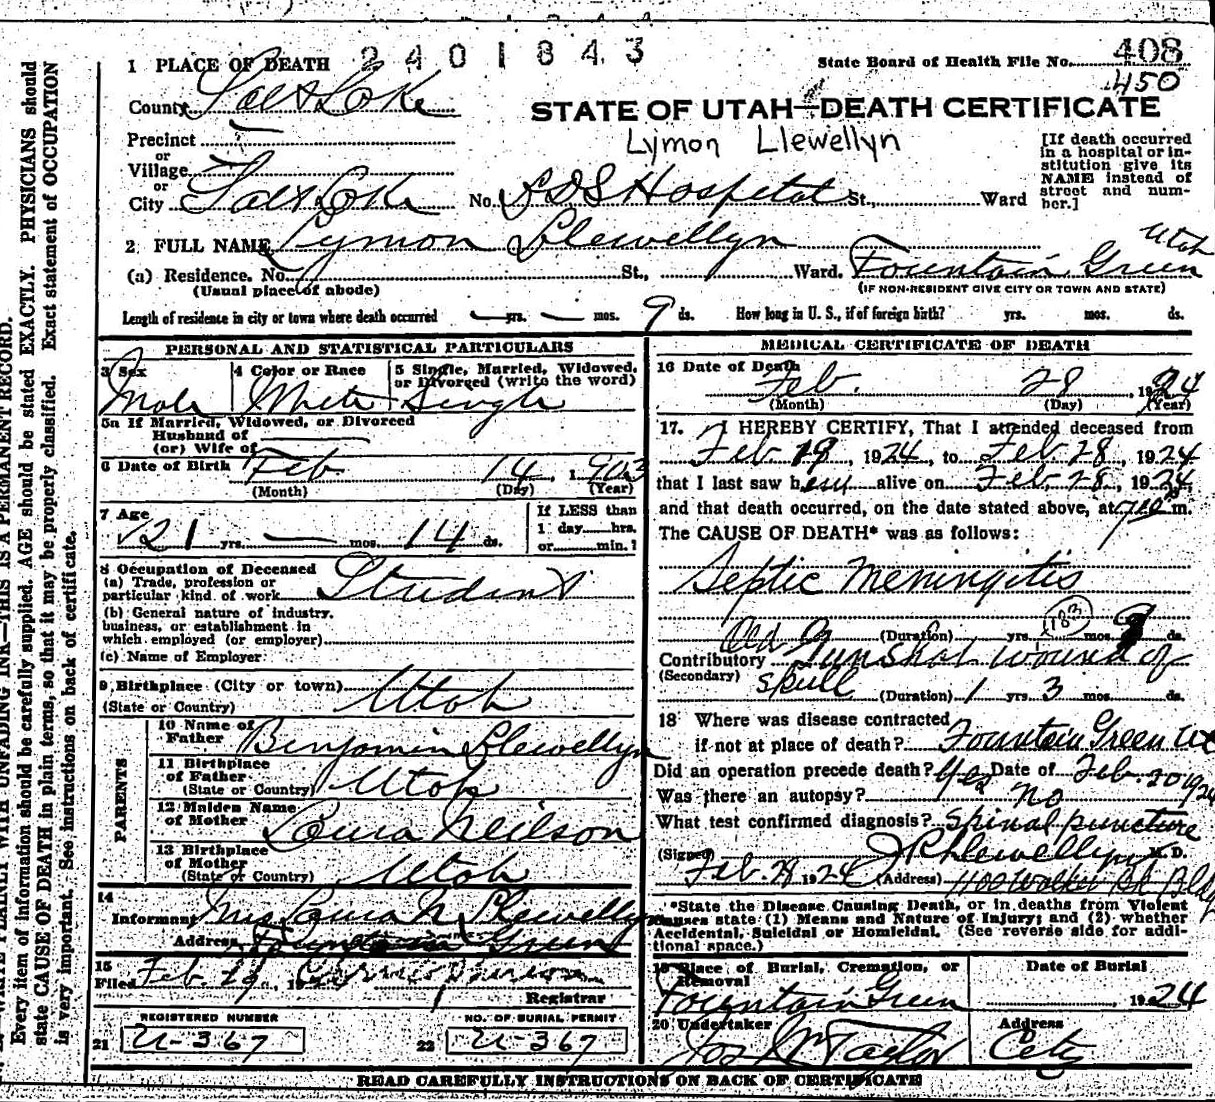 2401843
State Board of Health File No. 408
450
1 PLACE OF DEATH
County Salt Lake
STATE OF UTAH—DEATH CERTIFICATE
Lymon Llewellyn
Precinct
or
Village
or
City Salt Lake No. LDS Hospital St., Ward
[If death occurred in a hospital or institution give its NAME instead of street and number.]
2 FULL NAME Lymon Llewellyn
(a) Residence. No. St., Ward. Fountain Green Utah
(Usual place of abode) (IF NON-RESIDENT GIVE CITY OR TOWN AND STATE)
Length of residence in city or town where death occurred — yrs. — mos. 9 ds. How long in U. S., if of foreign birth? yrs. mos. ds.
PERSONAL AND STATISTICAL PARTICULARS
3 Sex 4 Color or Race 5 Single, Married, Widowed, or Divorced (write the word)
Male White Single
5a If Married, Widowed, or Divorced
Husband of
(or) Wife of
6 Date of Birth Feb 14, 1903
(Month) (Day) (Year)
7 Age
21 yrs. — mos. 14 ds.
If LESS than
1 day hrs.
or min.?
8 Occupation of Deceased
(a) Trade, profession or
particular kind of work Student
(b) General nature of industry,
business, or establishment in
which employed (or employer)
(c) Name of Employer
9 Birthplace (City or town)
(State or Country) Utah
PARENTS
10 Name of
Father Benjamin Llewellyn
11 Birthplace
of Father
(State or Country) Utah
12 Maiden Name
of Mother Laura Neilson
13 Birthplace
of Mother
(State or Country) Utah
14
Informant Mrs Laura N. Llewellyn
Address Fountain Green
15
Filed Feb. 29, 19
Registrar
REGISTERED NUMBER NO. OF BURIAL PERMIT
21 U-367 22 U-367
MEDICAL CERTIFICATE OF DEATH
16 Date of Death
Feb. 28, 1924
(Month) (Day) (Year)
17. I HEREBY CERTIFY, That I attended deceased from
Feb 19, 1924, to Feb 28, 1924
that I last saw him alive on Feb 28, 1924
and that death occurred, on the date stated above, at m.
The CAUSE OF DEATH* was as follows:
Septic Meningitis
183
(Duration) yrs. mos. 9 ds.
Contributory Old Gunshot wound of
(Secondary) skull
(Duration) 1 yrs. 3 mos. ds.
18 Where was disease contracted
if not at place of death? Fountain Green Ut
Did an operation precede death? Yes Date of Feb. 20 1924
Was there an autopsy? No
What test confirmed diagnosis? Spinal puncture
(Signed) Llewellyn M. D.
Feb. 28, 1924 (Address) 1100 Walker Bk Bldg
*State the Disease Causing Death, or in deaths from Violent
Causes state (1) Means and Nature of Injury; and (2) whether
Accidental, Suicidal or Homicidal. (See reverse side for addi-
tional space.)
19 Place of Burial, Cremation, or Removal Date of Burial
Fountain Green 1924
20 Undertaker Address
Jos Wm Taylor City
READ CAREFULLY INSTRUCTIONS ON BACK OF CERTIFICATE
WRITE PLAINLY WITH UNFADING INK—THIS IS A PERMANENT RECORD.
Every item of information should be carefully supplied. AGE should be stated EXACTLY. PHYSICIANS should
state CAUSE OF DEATH in plain terms, so that it may be properly classified. Exact statement of OCCUPATION
is very important. See instructions on back of certificate.